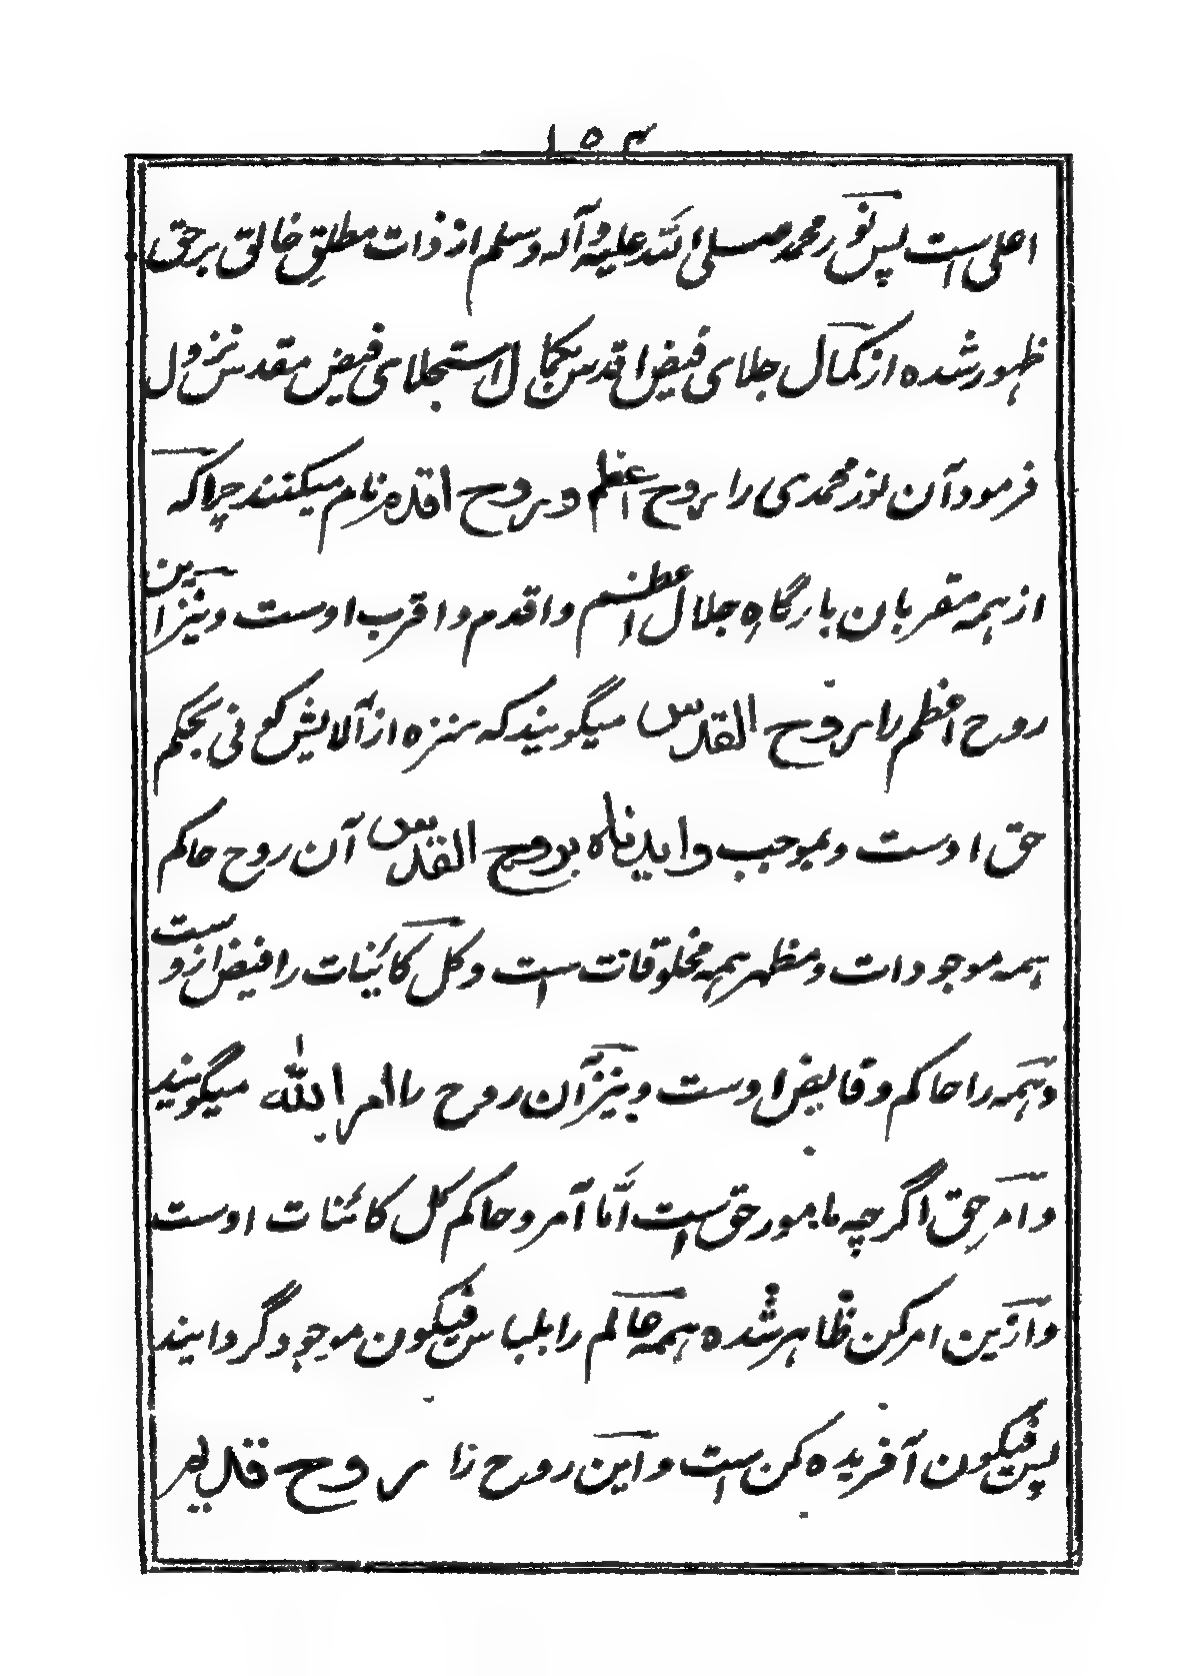 ۱۵۴
اعلی است پس نور محمد صلی الله علیه و آله وسلم از ذات مطلق خالق برحق
ظهور شده از کمال جلای فیض اقدس بکمال استجلای فیض مقدس نزول
فرمود آن نور محمدی را روح اعظم و روح اقدم نام میکنند چرا که
از همه مقربان بارگاه جلال اعظم و اقدم و اقرب اوست و نیز این
روح اعظم را روح القدس میگویند که منزه از آلایش کونی بحکم
حق اوست و بموجب وایدناه بروح القدس آن روح حاکم
همه موجودات و مظهر همه مخلوقات است و کل کائینات را فیض ازوست
و همه را حاکم و قابض اوست و نیز آن روح را امر الله میگویند
و امر حق اگرچه مامور حق است اما آمر و حاکم کل کائنات اوست
و ازین امر کن ظاهر شده همه عالم را بلباس فیکون موجود گردانیند
پس فیکون آفریده کن است و این روح را روح قدیر